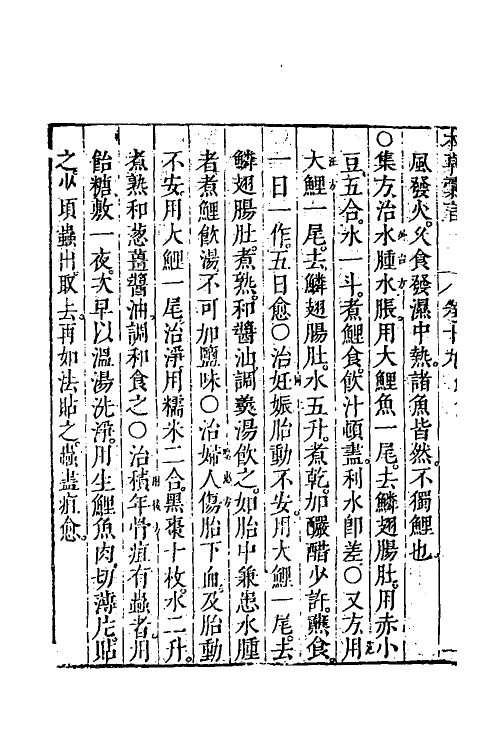 本草彙言 卷十九
風發火。久食發濕中熱。諸魚皆然。不獨鯉也
○集方。治水腫水脹。用大鯉魚一尾。去鱗翅腸肚。用赤小
豆五合。水一斗。煮鯉食。飲汁頓盡。利水卽差○又方。用
大鯉一尾。去鱗翅腸肚。水五升。煮乾。加釅醋少許。蘸食。
一日一作。五日愈○治妊娠胎動不安。用大鯉一尾。去
鱗翅腸肚。煮熟。和醬油。調羹湯飲之。如胎中兼患水腫
者煮鯉飲湯不可加鹽味○治婦人傷胎下血。及胎動
不安。用大鯉一尾。治淨。用糯米二合。黑棗十枚。水二升。
煮熟。和葱薑醬油。調和食之○治積年骨疽有蟲者。用
飴糖敷一夜。次早以溫湯洗淨。用生鯉魚肉。切薄片。貼
之。少頃蟲出。取去。再如法貼之。蟲盡疽愈。